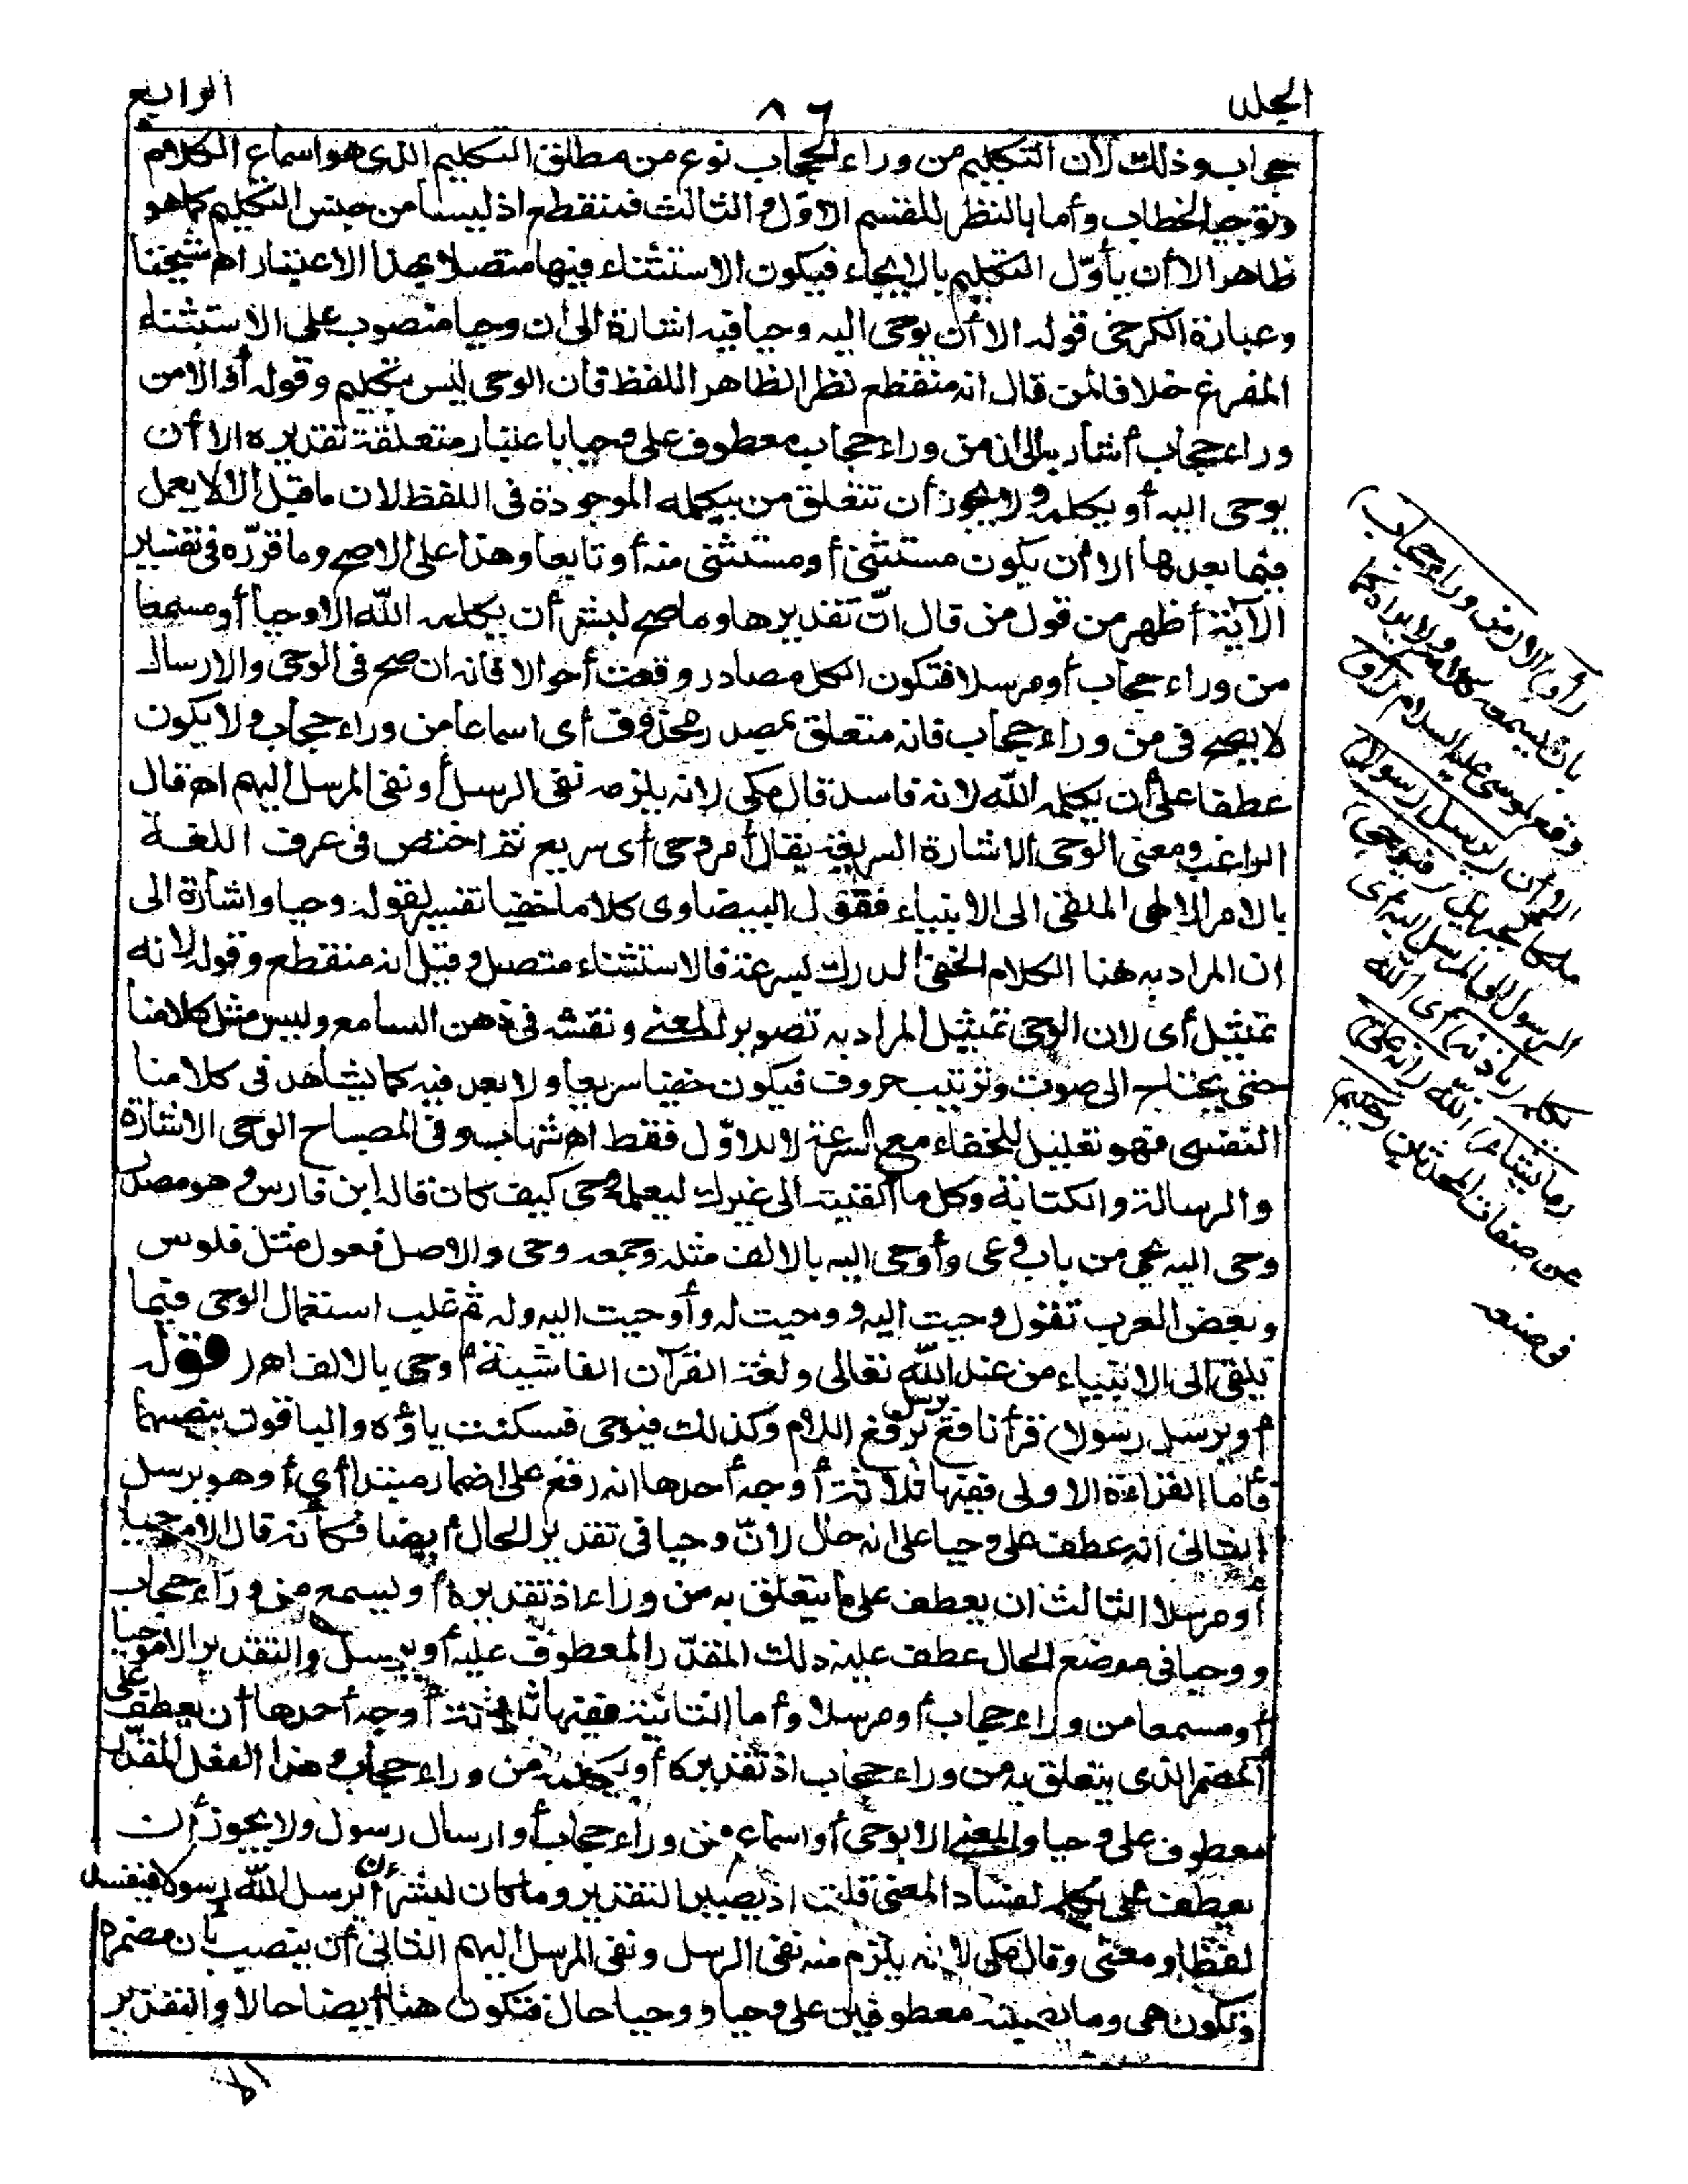 الجلد
٨٦
الرابع
حجاب وذلك لأن التكليم من وراء الحجاب نوع من مطلق التكليم الذى هو اسماع الكلام
وتوجيه الخطاب وأما بالنظر للقسم الاوّل والثالث فمنقطع اذ ليسا من جنس التكليم كما هو
ظاهر الا أن يأوّل التكليم بالايحاء فيكون الاستثناء فيها متصلا بهذا الاعتبار اه شيخنا
وعبارة الكرخى قوله الا أن يوحى اليه وحيا فيه اشارة الى ان وحيا منصوب على الاستثناء
المفرغ خلافا لمن قال انه منقطع نظرا لظاهر اللفظ فان الوحى ليس بتكليم وقوله أو الا من
وراء حجاب أشار به الى ان من وراء حجاب معطوف على وحيا باعتبار متعلقة تقديره الا أن
يوحى اليه أو يكلمه ولا يجوز أن تتعلق من بيكلمه الموجودة فى اللفظ لان ما قبل الا لا يعمل
فيما بعدها الا أن يكون مستثنى أو مستثنى منه أو تابعا وهذا على الاصح وما قررّه فى تفسير
الآية أظهر من قول من قال انّ تقديرها وما صح لبشر أن يكلمه الله الا وحيا أو مسمعا
من وراء حجاب أو مرسلا فتكون الكل مصادر وقعت أحوالا فانه ان صح فى الوحى والارسال
لا يصح فى من وراء حجاب فانه متعلق بمصدر محذوف أى اسماعا من وراء حجاب ولا يكون
عطفا على أن يكلمه الله لانه فاسد قال مكى لانه يلزمه نفى الرسل أو نفى المرسل اليهم اه قال
الراغب ومعنى الوحى الاشارة السريعة يقال أمر وحى أى سريع ثم اختص فى عرف اللغة
بالامر الالهى الملقى الى الانبياء فقول البيضاوى كلاما خفيا تفسير لقوله وحيا واشارة الى
ان المراد به هنا الكلام الخفى المدرك بسرعة فالاستثناء متصل وقيل انه منقطع وقوله لانه
تمثيل أى لان الوحى تمثيل المراد به تصوير المعنى ونقشه فى ذهن السامع وليس مثل كلامنا
حتى يحتاج الى صوت وترتيب حروف فيكون خفيا سريعا ولا بعد فيه كما يشاهد فى كلامنا
النفسى فهو تعليل للخفاء مع السرعة لا للاوّل فقط اه شهاب وفى المصباح الوحى الاشارة
والرسالة والكتابة وكل ما ألقيته الى غيرك ليعلمه وحى كيف كان قاله ابن فارس وهو مصدر
وحى اليه يحى من باب وعى وأوحى اليه بالالف مثله وجمعه وحى والاصل فعول مثل فلوس
وبعض العرب تقول وحيت اليه ووحيت له وأوحيت اليه وله ثم غلب استعمال الوحى فيما
يلقى الى الانبياء من عند الله تعالى ولغة القرآن الفاشية أوحى بالالف اه (قوله
أو يرسل رسولا) قرأ نافع برفع يرسل اللام وكذلك فيوحى فسكنت ياؤه والباقون بنصبهما
فأما القراءة الاولى ففيها ثلاثة أوجه أحدها انه رفع على اضمار مبتدا أى أو هو يرسل
الثانى انه عطف على وحيا على انه حال لانّ وحيا فى تقدير الحال أيضا فكأنه قال الا موحيا
أو مرسلا الثالث ان يعطف على ما يتعلق به من وراء اذ تقديره أو يسمع من وراء حجاب
ووحيا فى موضع الحال عطف عليه ذلك المقدّر المعطوف عليه أو يرسل والتقدير الا موحيا
أو مسمعا من وراء حجاب أو مرسلا وأما الثانية ففيها ثلاثة أوجه أحدها أن يعطف على
المضمر الذى يتعلق به من وراء حجاب اذ تقديره أو يكلمه من وراء حجاب وهذا الفعل المقدّر
معطوف على وحيا والمعنى الا بوحى أو اسماع من وراء حجاب أو ارسال رسول ولا يجوز أن
يعطف على يكلمه لفساد المعنى قلت اذ يصير التقدير وما كان لبشر أن يرسل الله رسولا فيفسد
لفظا ومعنى وقال مكى لانه يلزم منه نفى الرسل ونفى المرسل اليهم الثانى أن ينصب بأن مضمرة
وتكون هى وما نصبته معطوفين على وحيا ووحيا حال فتكون هنا أيضا حالا والتقدير
الا
(أو) الا (من وراء حجاب)
بان يسمعه كلامه ولا يراه كما
وقع لموسى عليه السلام (أو)
الا أن (يرسل رسولا)
ملكا كجبريل (فيوحى)
الرسول الى المرسل اليه أى
يكلمه (باذنه) أى الله
(ما يشاء) الله (انه على)
عن صفات المحدثين (حكيم)
فى صنعه